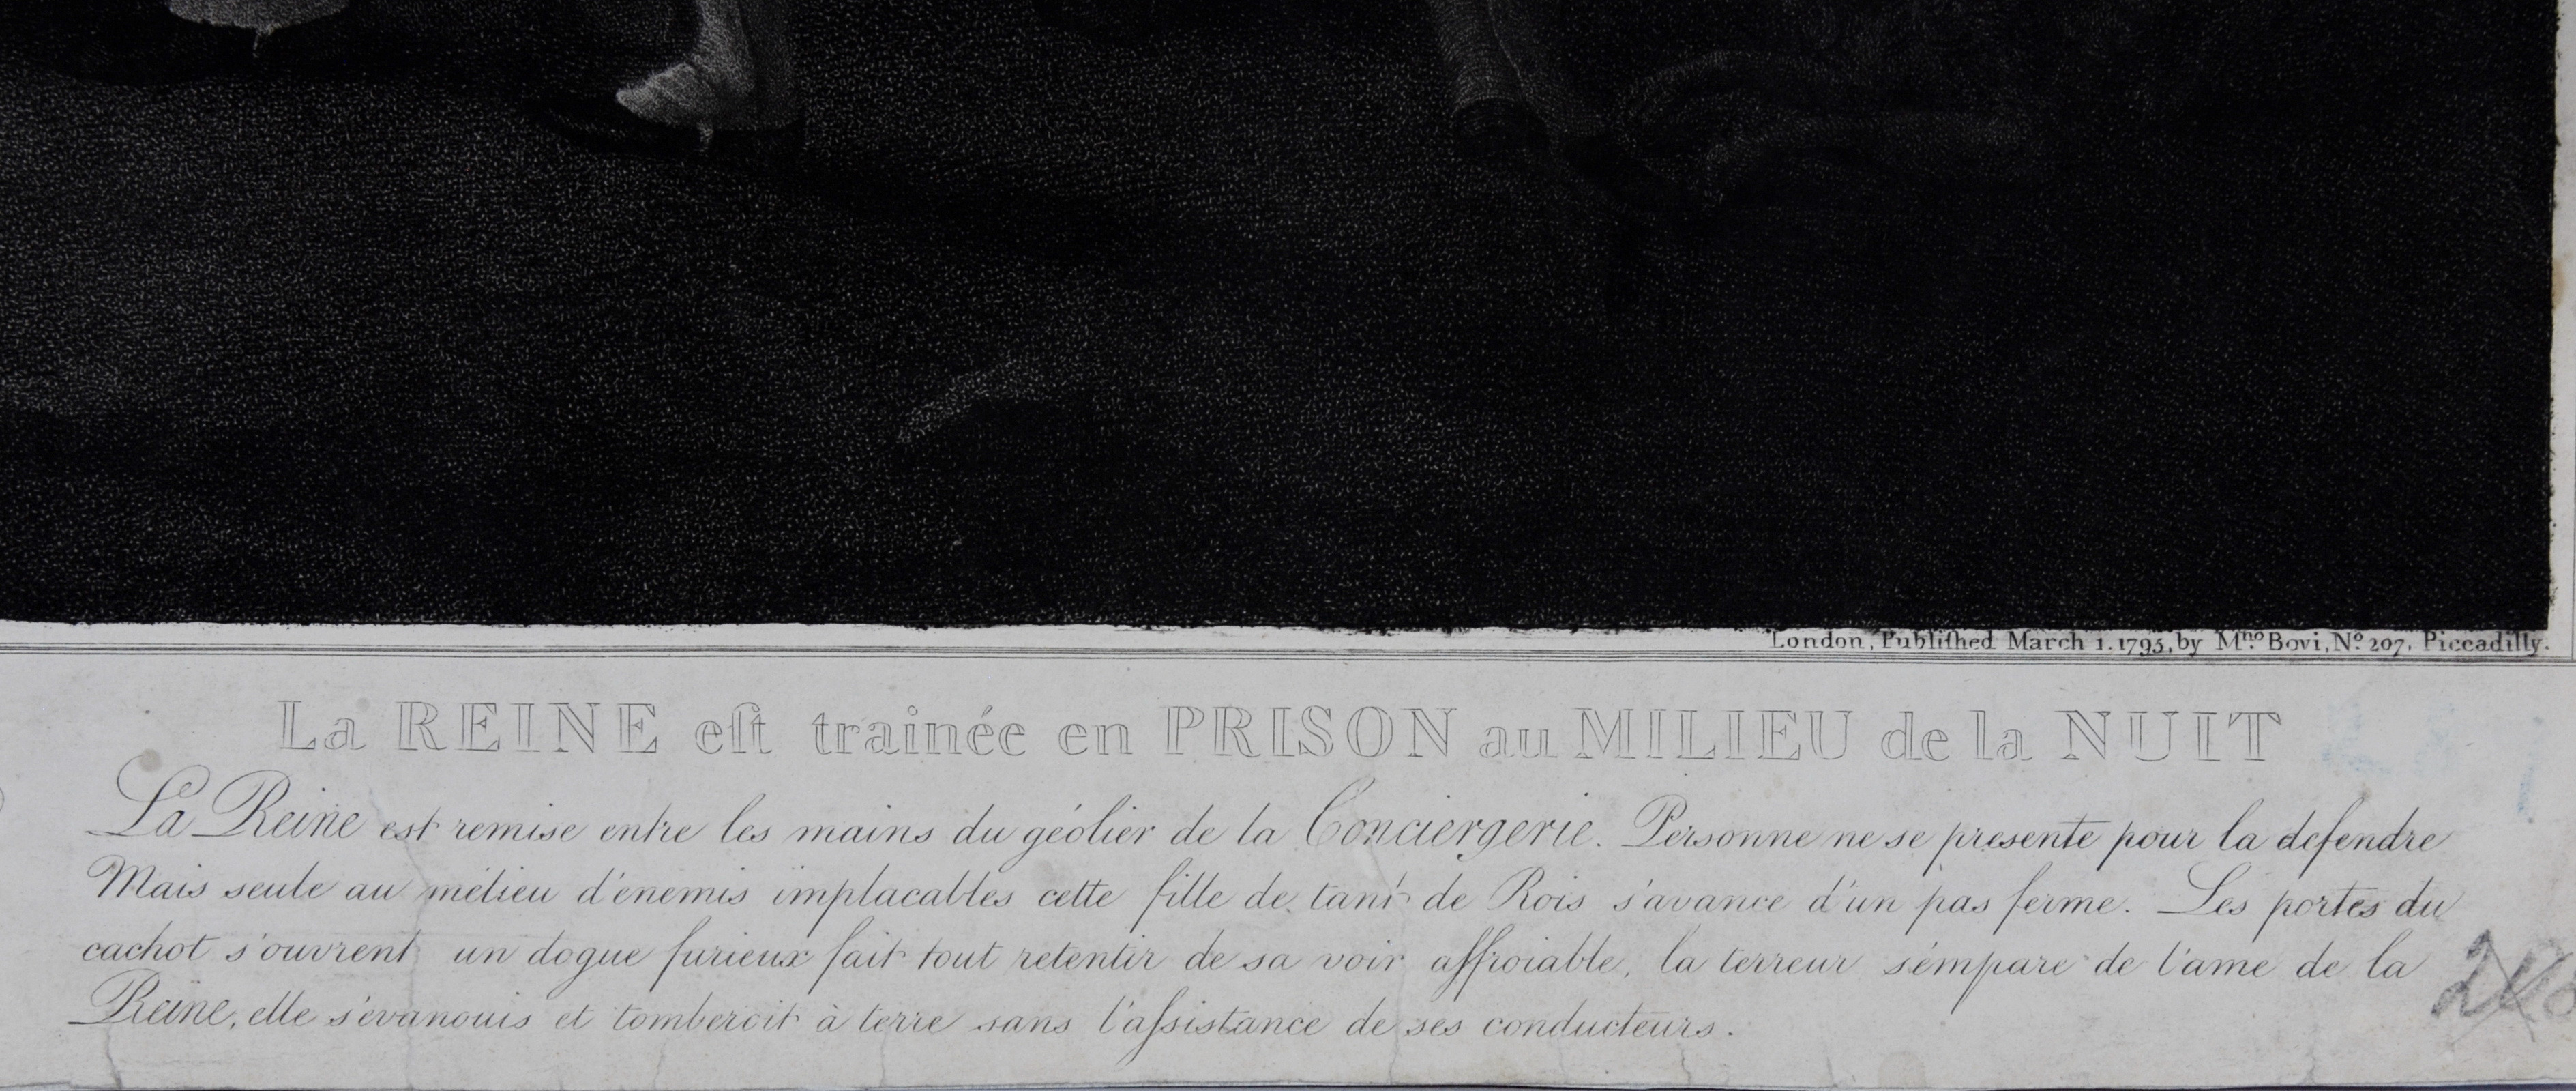 London, Publiſhed March 1. 1795, by Mno. Bovi, No. 207, Piccadilly.
La REINE eſt trainée en PRISON au MILIEU de la NUIT
La Reine est remise entre les mains du géolier de la Conciergerie. Personne ne se presente pour la defendre
Mais seule au mélieu d'énemis implacables cette fille de tant de Rois s'avance d'un pas ferme. Les portes du
cachot s'ouvrent un dogue furieux fait tout retentir de sa voix affroiable, la terreur s'émpare de l'ame de la
Reine, elle s'évanouis et tomberoit à terre sans l'aſsistance de ses conducteurs.